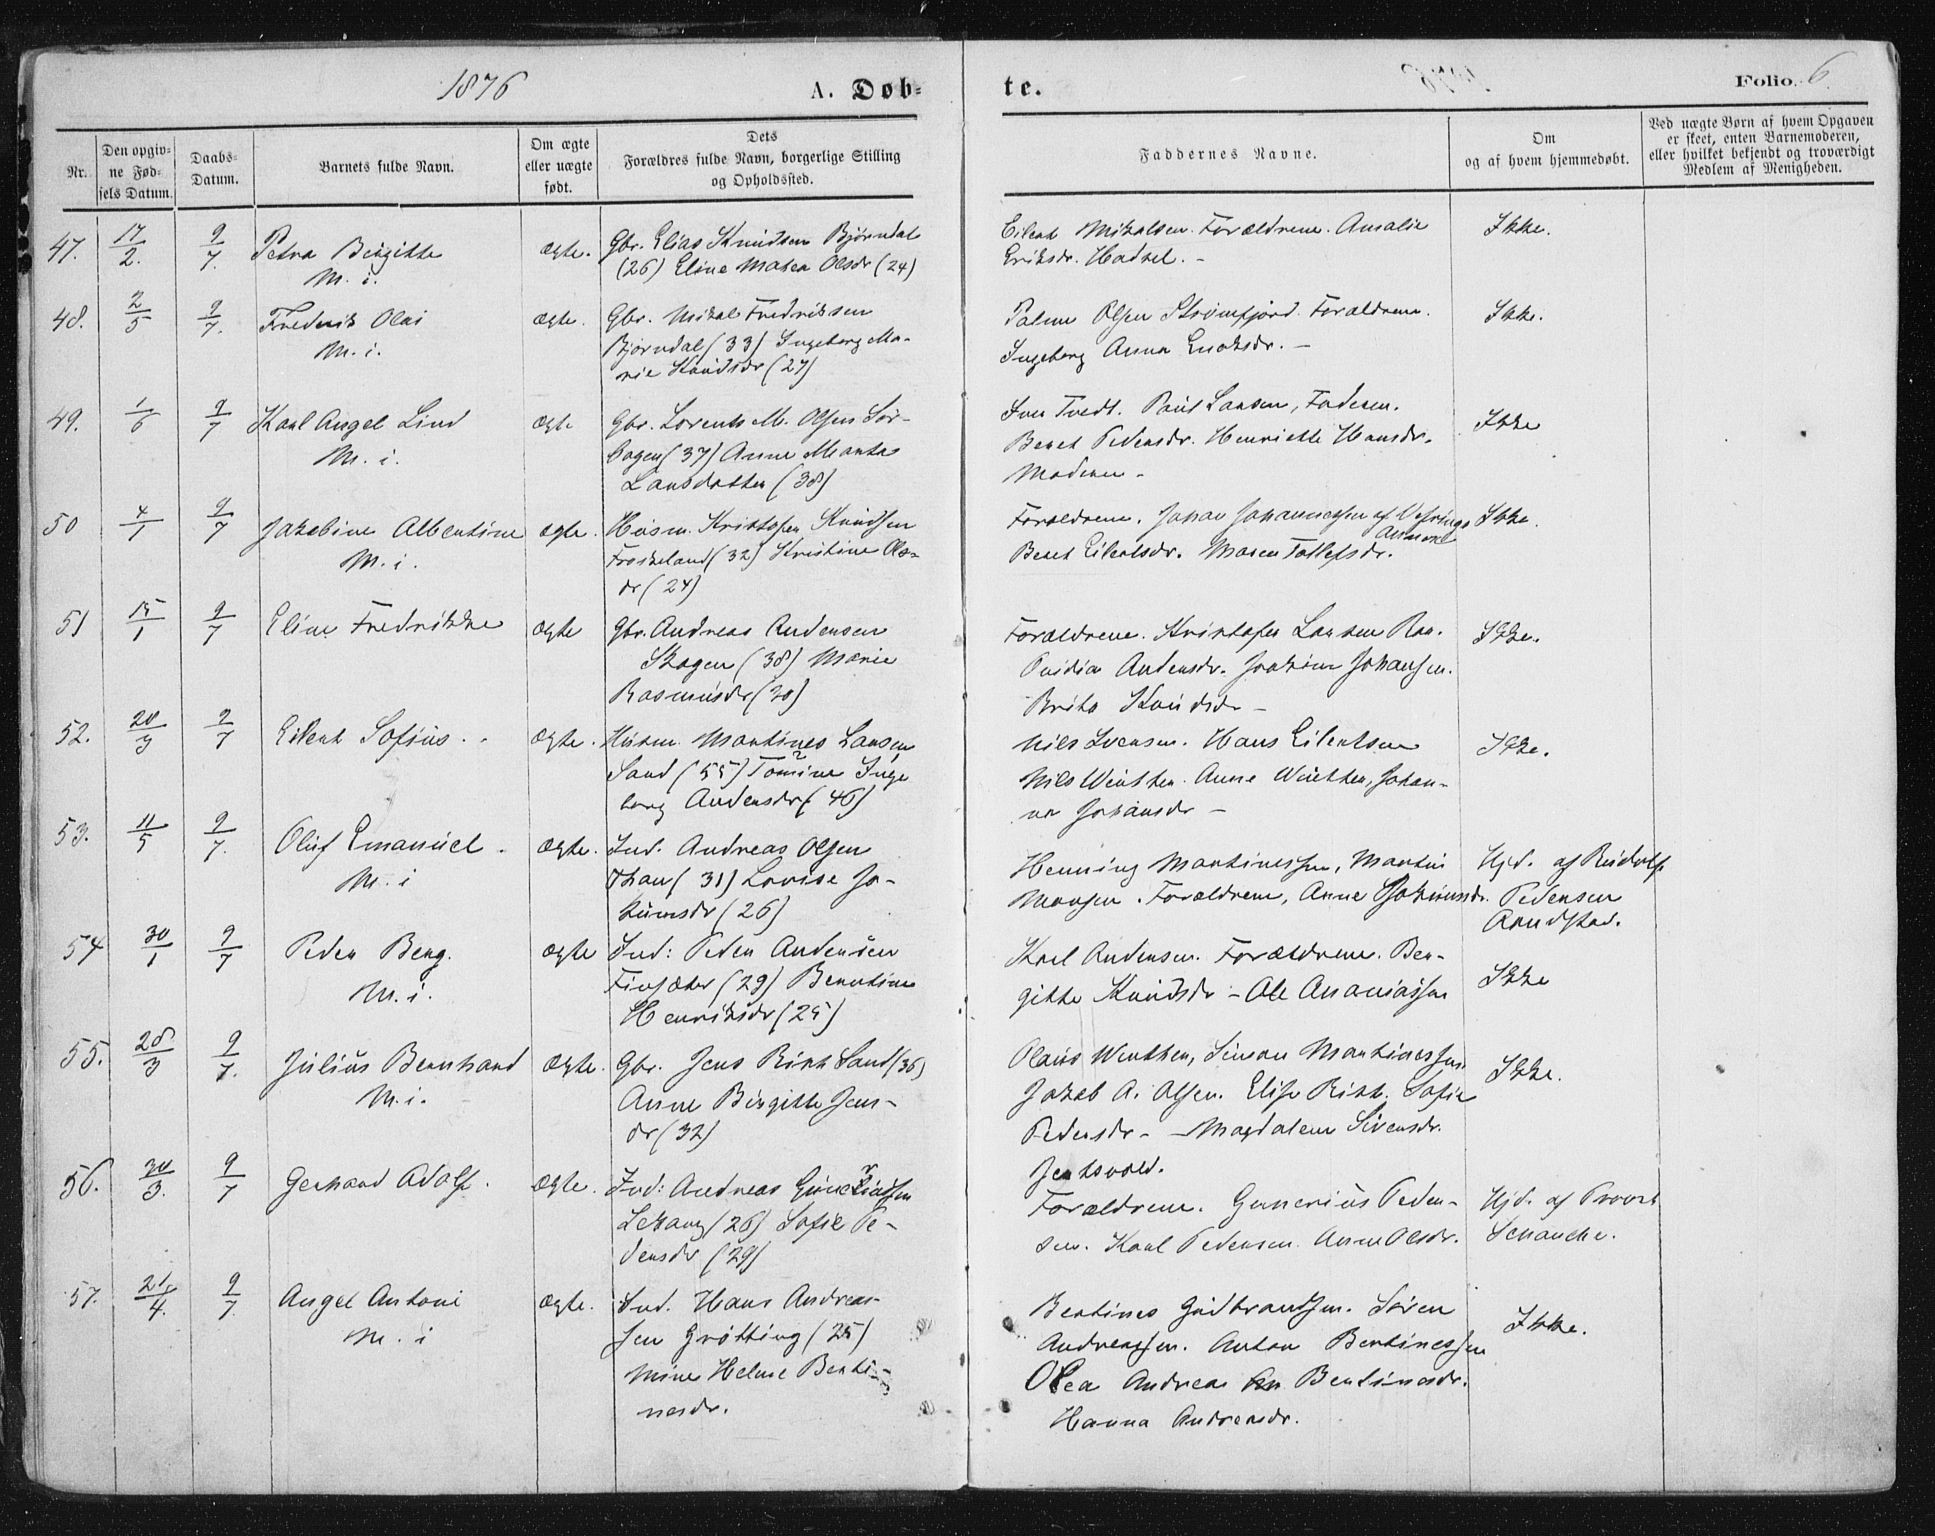 1876
A. Døb-
te.
Folio 6.
Nr.
Den opgiv-
ne Fød-
sels Datum.
Daabs-
Datum.
Barnets fulde Navn.
Om ægte
eller uægte
født.
Dets
Forældres fulde Navn, borgerlige Stilling
og Opholdssted.
Faddernes Navne.
Om
og af hvem hjemmedøbt.
Ved uægte Børn af hvem Opgaven
er skeet, enten Barnemoderen,
eller hvilket bekjendt og troværdigt
Medlem af Menigheden.
47. 17/2. 9/7. Petra Birgitte
M. i.
ægte.
Gbr. Elias Knudsen Bjørndal
(26) Eline Maten Olsdr (24)
Eilert Mikalsen. Forældrene. Amalie
Eriksdr. Hadsel. -
Ikke.
48. 2/5 9/7. Fredrik Olai
M. i.
ægte.
Gbr. Mikal Fredriksen
Bjørndal (33) Ingeborg Ma-
rie Knudsdr (27)
Olsen Strømfjord. Forældrene.
Ingeborg Anna Enoksdr. -
Ikke.
49. 1/6 9/7 Karl Angel Lind
M. i.
ægte
Gbr. Lorents M. Olsen Sør-
(37) Anne Marta
Larsdatter (38)
Iver Tvedt. Paul Larsen, Faderen.
Beret Pedersdr. Henriette Hansdr.
Moderen -
Ikke
50 4/1 9/7 Jakobine Albertine
M. i.
ægte.
Husm. Kristofer Knudsen
Friskeland (32) Kristine Ols-
dr (24)
Forældrene. Johan Johannessen af
Beret Eilertsdr. Maren Tollefsdr.
Ikke.
51 15/1 9/7 Eline Fredrikke
ægte
Gbr. Andreas Andersen
Skogen (38) Marie
Rasmusdr (30)
Forældrene. Kristofer Larsen
Andersdr. Joakim Johansen.
Knudsdr -
Ikke.
52. 28/3 9/7 Eilert Sofius.
ægte.
Husm. Martines Larsen
Sand (55) Tomine Inge
borg Andersdr (46)
Nils Svensen. Hans Eilertsen
Nils Winther. Anne Winther, Johan-
na Johansdr -
Ikke.
53. 11/5 9/7. Oluf Emanuel.
M. i
ægte.
Ind. Andreas Olsen
(31) Lovise Jo-
kumsdr (26)
Henning Martinessen, Martin
Monsen. Forældrene, Anne Jokumsdr.
Hjd. af Rudolf
Pedersen
Arndstad.
54 30/1 9/7 Peder Berg.
M. i.
ægte
Ind: Peder Andersen
Finsæter (29) Berntine
Henriksdr (25)
Karl Andersen. Forældrene. Ber-
gitte Knudsdr - Ole Ananiassen
Ikke
55. 28/3 9/7. Julius Bernhard
M. i.
ægte.
Gbr. Jens Sand (36)
Anne Birgitte Jens-
dr (32)
Olaus Winther, Simon Martinessen.
Jakob A. Olsen. Elise Sofie
Pedersdr - Magdalene Sivensdr.
Ikke.
56. 30/3. 9/7 Gerhard Adolf.
ægte.
Ind: Andreas
Lekang (26) Sofie Pe-
dersdr (29)
Forældrene. Gunerius Peder-
sen. Karl Pedersen. Anne Olsdr.
Hjd. af Provst
Schanche.
57. 21/4. 9/7. Angel Antoni
M. i
ægte.
Ind. Hans Andreas-
sen Grøtting (25)
Mine Helme Berti-
nesdr.
Bertines Gudbrandsen. Søren
Andreassen. Anton Bertinessen
Olea Andrea Bertinesdr.
Hanna Andreasdr.
Ikke.